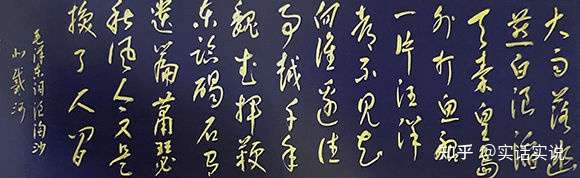 大雨落幽
燕白浪滔
天秦皇岛
外打鱼船
一片汪洋
都不见知
向谁边往
事越千年
魏武挥鞭
东临碣石有
遗篇萧瑟
秋风今又是
换了人间
毛泽东词浪淘沙
北戴河
知乎 @实话实说